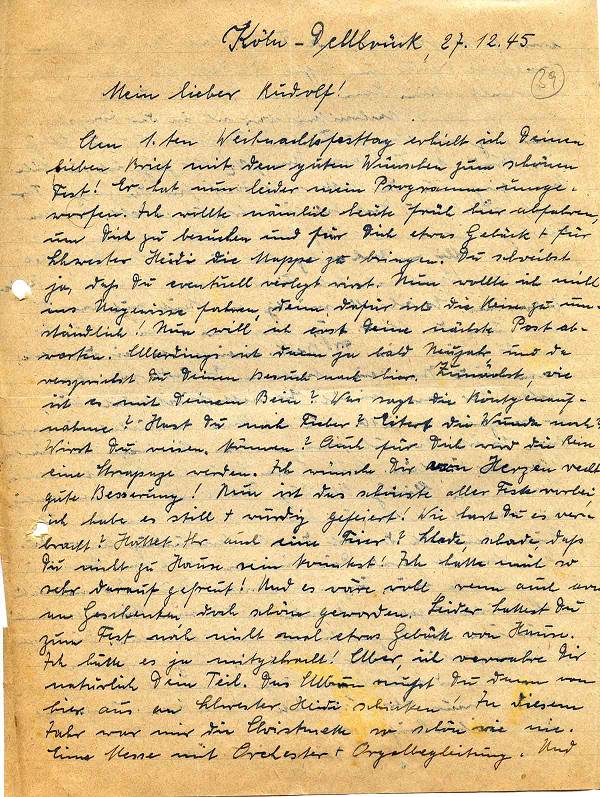 Köln-Dellbrück, 27.12.45
39
Mein lieber Rudolf!
Am 1.ten Weihnachtsfesttag erhielt ich Deinen
lieben Brief mit den guten Wünschen zum schönen
Fest! Er hat nun leider mein Programm umge-
worfen. Ich wollte nämlich heute früh hier abfahren,
um Dich zu besuchen und für Dich etwas Gebäck + für
Schwester Heidi die Mappe zu bringen. Du schreibst
ja, daß Du eventuell verlegt wirst. Nun wollte ich nicht
ins Ungewisse fahren, denn dafür ist die Reise zu um-
ständlich! Nun will ich erst Deine nächste Post ab-
warten. Allerdings ist dann ja bald Neujahr und da
versprichst Du Deinen Besuch nach hier. Zunächst, wie
ist es mit Deinem Bein? Was sagt die Röntgenauf-
nahme? Hast Du noch Fieber? Eitert die Wunde noch?
Wirst Du reisen können? Auch für Dich wird die Reise
eine Strapaze werden. Ich wünsche Dir von Herzen recht
gute Besserung! Nun ist das schönste aller Feste vorbei,
ich habe es still + würdig gefeiert! Wie hast Du es ver-
bracht? Hattet Ihr auch eine Feier? Schade, schade, daß
Du nicht zu Hause sein konntest! Ich hatte mich so
sehr darauf gefreut! Und es wäre wohl, wenn auch arm
an Geschenken doch schön geworden. Leider hattest Du
zum Fest noch nicht mal etwas Gebäck von Hause.
Ich hätte es ja mitgebracht! Aber, ich verwahre Dir
natürlich Dein Teil. Das Album mußt Du dann von
hier aus an Schwester Heidi schicken! In diesem
Jahr war mir die Christmette so schön wie nie.
Eine Messe mit Orchester + Orgelbegleitung. Und